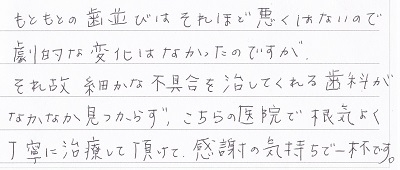 もともとの歯並びはそれほど悪くはないので
劇的な変化はなかったのですが、
それ故 細かな不具合を治してくれる歯科が
なかなか見つからず、こちらの医院で根気よく
丁寧に治療して頂けて、感謝の気持ちで一杯です。